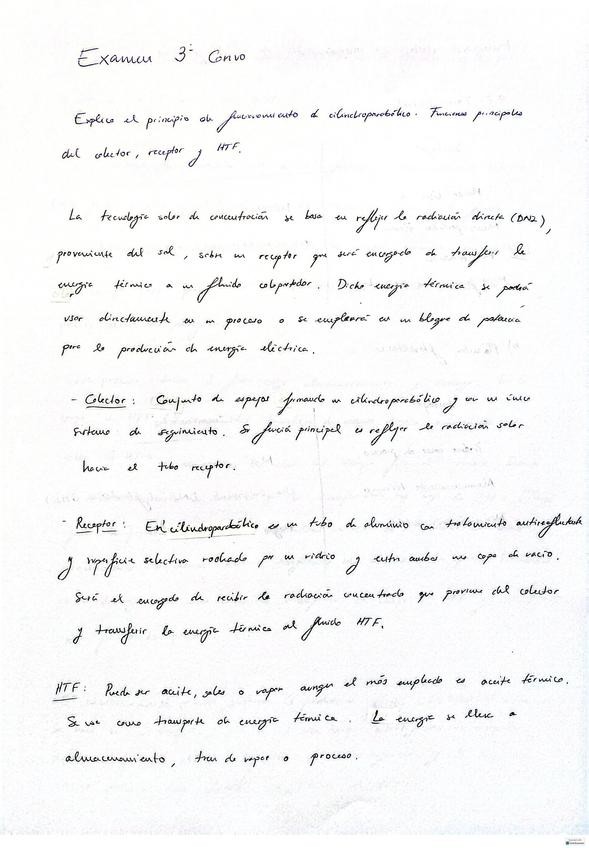 Examen 3ª Convo
Explica el principio de funcionamiento de cilindroparabólico. Funciones principales
del colector, receptor y HTF.
La tecnología solar de concentración se basa en reflejar la radiación directa (DNI),
proveniente del sol, sobre un receptor que será encargado de transferir la
energía térmica a un fluido caloportador. Dicha energía térmica se podrá
usar directamente en un proceso o se empleará en un bloque de potencia
para la producción de energía eléctrica.
- Colector: Conjunto de espejos formando un cilindroparabólico y con un único
sistema de seguimiento. Su función principal es reflejar la radiación solar
hacia el tubo receptor.
- Receptor: En cilindroparabólico es un tubo de aluminio con tratamiento antireflectante
y superficie selectiva rodeado por un vidrio y entre ambos una capa de vacío.
Será el encargado de recibir la radiación concentrada que proviene del colector
y transferir la energía térmica al fluido HTF.
HTF: Puede ser aceite, sales o vapor aunque el más empleado es aceite térmico.
Se usa como transporte de energía térmica. La energía se lleva a
almacenamiento, tren de vapor o proceso.